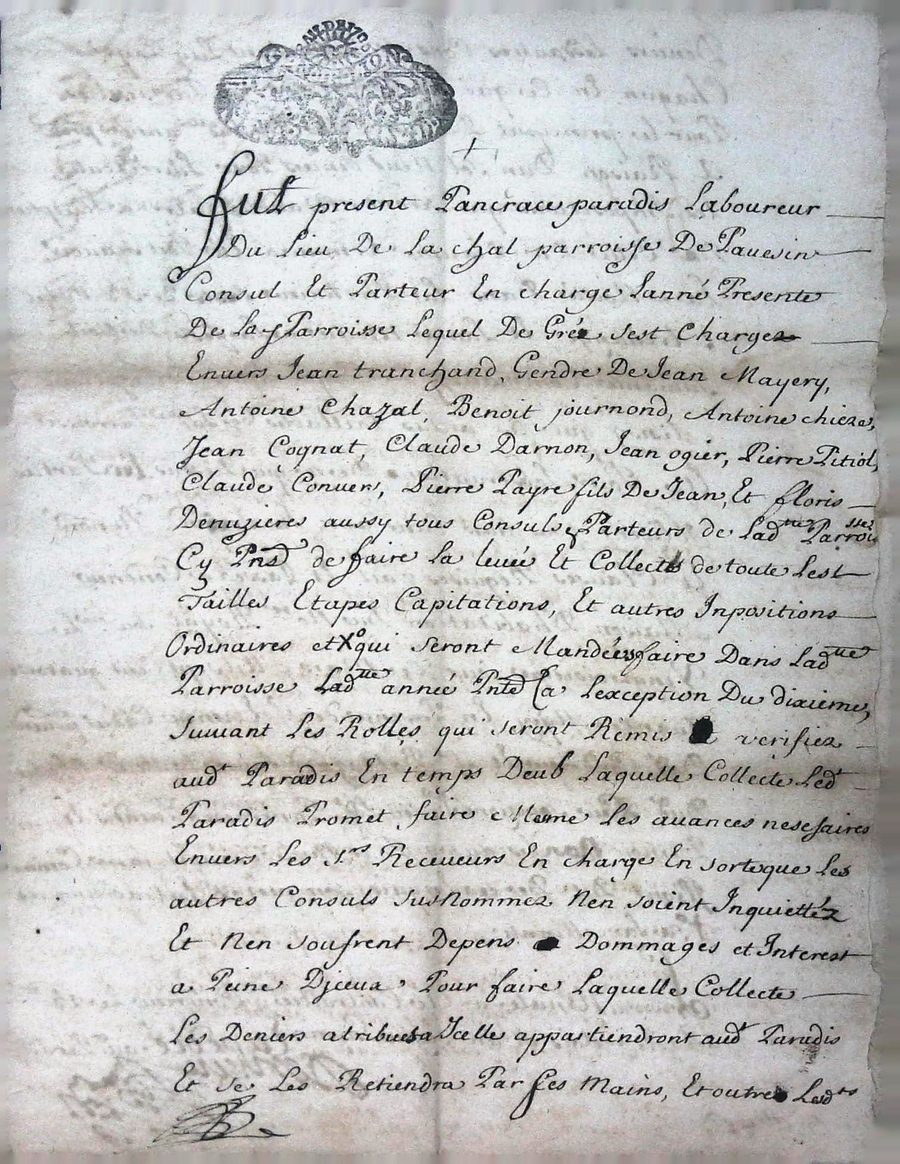 Fut present Pancrace paradis Laboureur
Du Lieu De La chal parroisse De Pavesin
Consul Et Parteur En charge Lanné Presente
De La Parroisse Lequel De Gré sest Chargez
Envers Jean tranchand, Gendre De Jean Mayery,
Antoine Chazal, Benoit journond, Antoine chieze,
Jean Cognat, Claude Darnon, Jean ogier, Pierre Pitiol,
Claude Convers, Pierre Payre fils De Jean, Et floris
Denuzieres aussy tous Consuls Parteurs de Ladtte Parroisse
Cy Pnsd de faire La levée Et Collecte de toute Lest
Tailles Etapes Capitations, Et autres Inpositions
Ordinaires et Xo qui seront Mandées faire Dans Ladtte
Parroisse Ladtte année Pnte a Lexception Du dixieme,
suivant Les Rolles qui seront Remis verifiez
audt Paradis En temps Deub Laquelle Collecte Ledt
Paradis Promet faire Meme Les avances nesessaires
Envers Les Srs Receveurs En charge En sorte que Les
autres Consuls susnommez Nen soient Inquiettéz
Et Nen soufrent Depens Dommages et Interest
a Peine Djceux Pour faire Laquelle Collecte
Les Deniers atribues a Icelle appartiendront audt Paradis
Et se Les Retiendra Par ses Mains, Et outre Lesdts